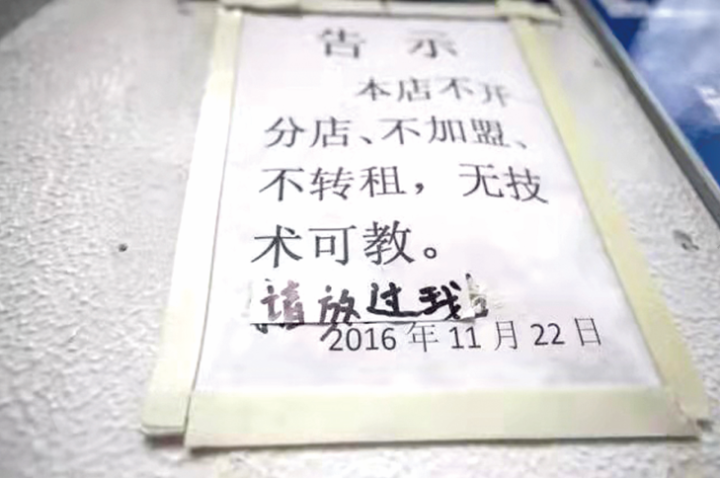 告 示
本店不开
分店、不加盟、
不转租，无技
术可教。
请放过我
2016 年 11 月 22 日